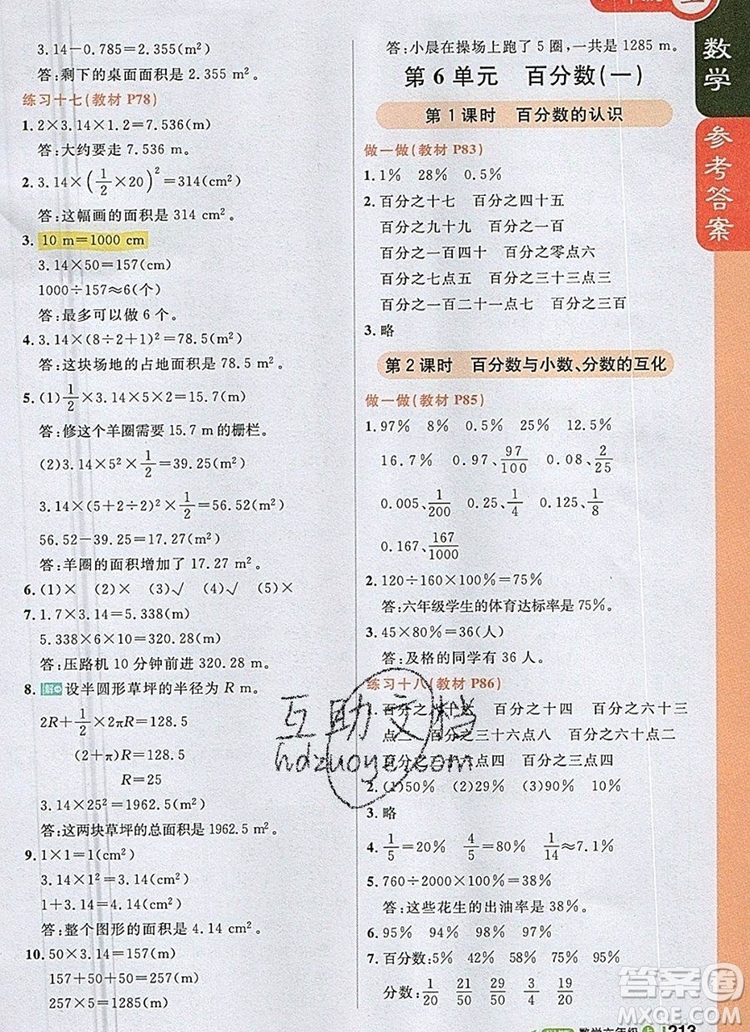 3.14－0.785＝2.355(m²)
答：剩下的桌面面积是 2.355 m²。
练习十七(教材 P78)
1. 2×3.14×1.2＝7.536(m)
答：大约要走 7.536 m。
2. 3.14×(1/2×20)²＝314(cm²)
答：这幅画的面积是 314 cm²。
3. 10 m＝1000 cm
3.14×50＝157(cm)
1000÷157≈6(个)
答：最多可以做 6 个。
4. 3.14×(8÷2＋1)²＝78.5(m²)
答：这块场地的占地面积是 78.5 m²。
5. (1)1/2×3.14×5×2＝15.7(m)
答：修这个羊圈需要 15.7 m 的栅栏。
(2)3.14×5²×1/2＝39.25(m²)
3.14×(5＋2÷2)²×1/2＝56.52(m²)
56.52－39.25＝17.27(m²)
答：羊圈的面积增加了 17.27 m²。
6. (1)× (2)× (3)√ (4)√ (5)×
7. 1.7×3.14＝5.338(m)
5.338×6×10＝320.28(m)
答：压路机 10 分钟前进 320.28 m。
8. 解 设半圆形草坪的半径为 R m。
2R＋1/2×2πR＝128.5
(2＋π)R＝128.5
R＝25
3.14×25²＝1962.5(m²)
答：这两块草坪的总面积是 1962.5 m²。
9. 1×1＝1(cm²)
3.14×1²＝3.14(cm²)
1＋3.14＝4.14(cm²)
答：整个图形的面积是 4.14 cm²。
10. 50×3.14＝157(m)
157＋50＋50＝257(m)
257×5＝1285(m)
答：小晨在操场上跑了 5 圈，一共是 1285 m。
第 6 单元 百分数(一)
第 1 课时 百分数的认识
做一做(教材 P83)
1. 1% 28% 0.5%
2. 百分之十七 百分之四十五
百分之九十九 百分之一百
百分之一百四十 百分之零点六
百分之七点五 百分之三十三点三
百分之一百二十一点七 百分之三百
3. 略
第 2 课时 百分数与小数、分数的互化
做一做(教材 P85)
1. 97% 8% 0.5% 25% 12.5%
16.7% 0.97、97/100 0.08、2/25
0.005、1/200 0.25、1/4 0.125、1/8
0.167、167/1000
2. 120÷160×100%＝75%
答：六年级学生的体育达标率是 75%。
3. 45×80%＝36(人)
答：及格的同学有 36 人。
练习十八(教材 P86)
1. 百分之三 百分之十四 百分之六十三
点三 百分之三十四点六
2. (1)50% (2)29% (3)90%
3. 略
4. 1/5＝20% 4/5＝80%
5. 760÷2000×100%＝38%
答：这些花生的出油率是 38%。
6. 95% 94% 92% 94%
数学
参考答案
互助文档
hdzuoye.com
答案圈
数学六年级 上 213